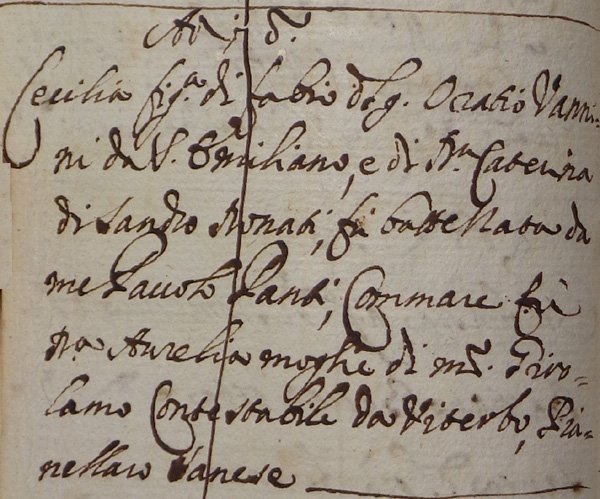 Cecilia fig.a di Fabio del q. Oratio Vanni=
ni da S. Emiliano, e di Ma. Caterina
di Sandro Donati, fu battezzata da
me Pauolo Santi, Commare fu
Ma. Aurelia moglie di mr. Giro=
lamo Contestabile da Viterbo,